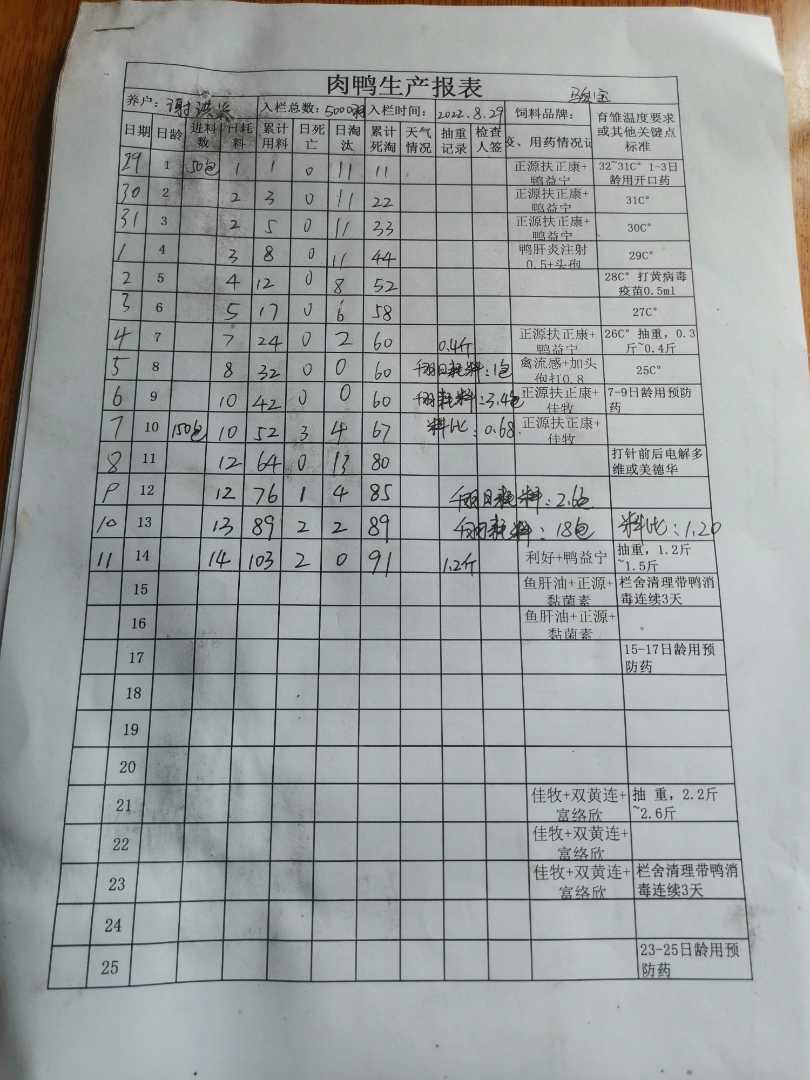 肉鸭生产报表
养户: 谢洪 入栏总数: 5000羽 入栏时间: 2022.8.29 饲料品牌:
日期 日龄 进料数 日耗料 累计用料 日死亡 日淘汰 累计死淘 天气情况 抽重记录 检查人签 、用药情况记 育雏温度要求或其他关键点标准
29 1 50包 1 1 0 11 11 正源扶正康+鸭益宁 32~31C° 1-3日龄用开口药
30 2 2 3 0 11 22 正源扶正康+鸭益宁 31C°
31 3 2 5 0 11 33 正源扶正康+鸭益宁 30C°
1 4 3 8 0 11 44 鸭肝炎注射0.5+头孢 29C°
2 5 4 12 0 8 52 28C° 打黄病毒疫苗0.5ml
3 6 5 17 0 6 58 27C°
4 7 7 24 0 2 60 0.4斤 正源扶正康+鸭益宁 26C° 抽重,0.3斤~0.4斤
5 8 8 32 0 0 60 千羽日耗料:1包 禽流感+加头孢打0.8 25C°
6 9 10 42 0 0 60 千羽耗料:3.4包 正源扶正康+佳牧 7-9日龄用预防药
7 10 150包 10 52 3 4 67 料比:0.68 正源扶正康+佳牧
8 11 12 64 0 13 80 打针前后电解多维或美德华
9 12 12 76 1 4 85 千羽日耗料:2.6包
10 13 13 89 2 2 89 千羽耗料:18包 料比:1.20
11 14 14 103 2 0 91 1.2斤 利好+鸭益宁 抽重,1.2斤~1.5斤
15 鱼肝油+正源+黏菌素 栏舍清理带鸭消毒连续3天
16 鱼肝油+正源+黏菌素
17 15-17日龄用预防药
18
19
20
21 佳牧+双黄连+富络欣 抽 重,2.2斤~2.6斤
22 佳牧+双黄连+富络欣
23 佳牧+双黄连+富络欣 栏舍清理带鸭消毒连续3天
24
25 23-25日龄用预防药